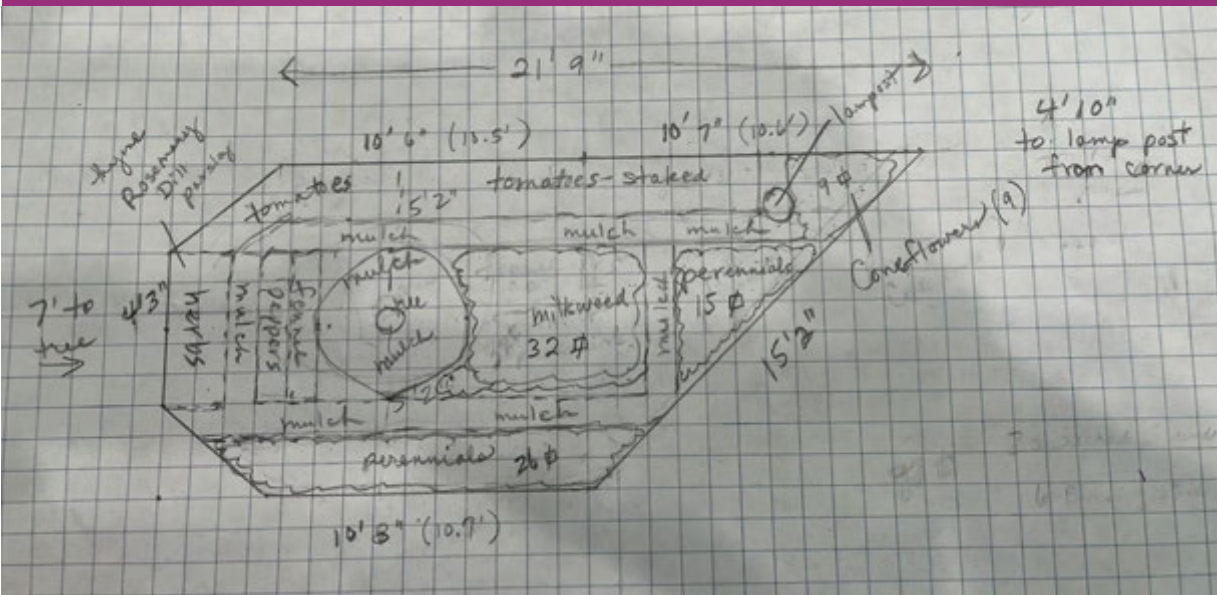 21' 9"
lampost
10' 6" (10.5')
10' 7"
4' 10"
to lamp post
from corner
thyme
Rosemary
Dill
parsley
tomatoes
tomatoes - staked
5' 2"
9
Coneflowers (9)
mulch
mulch
mulch
7' to
tree
4'3"
herbs
mulch
peppers
fennel
mulch
tree
mulch
milkweed
32
mulch
perennials
15
15' 2"
mulch
mulch
perennials 26
10' 8" (10.7')